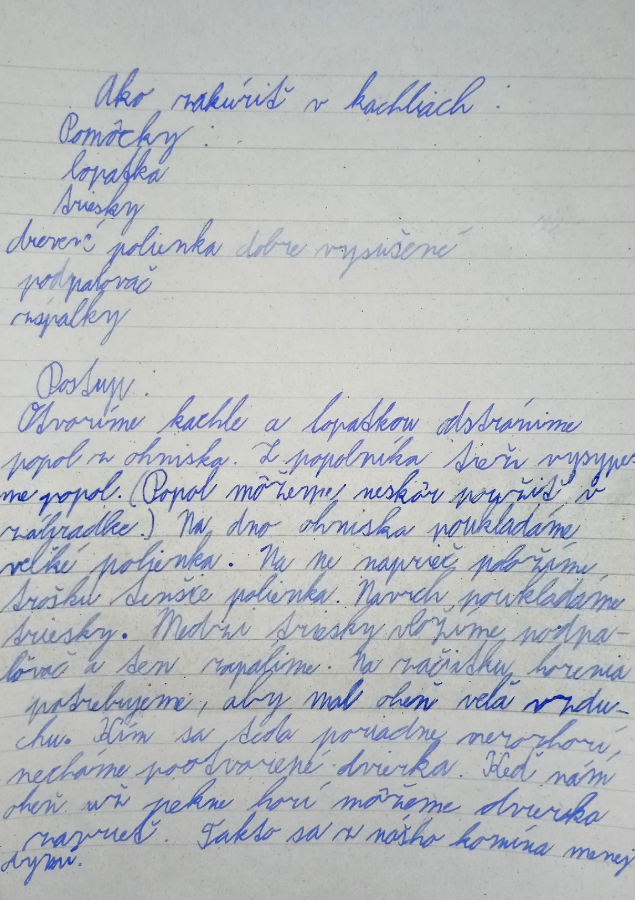 Ako zakúriť v kachliach :
Pomôcky :
lopatka
triesky
drevené polienka dobre vysušené
podpaľovač
zápalky
Postup.
Otvoríme kachle a lopatkou odstránime
popol z ohniska. Z popolníka tiež vysype-
me popol. (Popol môžeme neskôr použiť v
záhradke.) Na dno ohniska poukladáme
veľké polienka. Na ne naprieč položíme
trošku tenšie polienka. Navrch poukladáme
triesky. Medzi triesky vložíme podpa-
ľovač a ten zapálime. Na začiatku horenia
potrebujeme, aby mal oheň veľa vzdu-
chu. Kým sa teda poriadne nerozhorí,
necháme pootvorené dvierka. Keď nám
oheň už pekne horí môžeme dvierka
zavrieť. Takto sa z nášho komína menej
dymí.